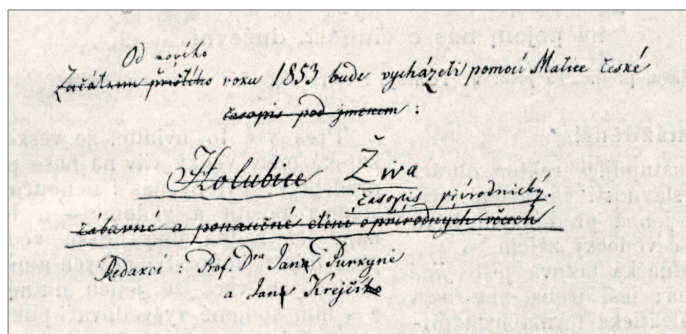 Od nového
Začátkem příštího roku 1853 bude vycházeti pomocí Matice české
časopis pod jmenem :
Holubice Živa
časopis přírodnický
zábavné a ponaučné čtení o přírodných věcech
Redakcí : Prof. Dra Jana Purkyně
a Jana Krejčího